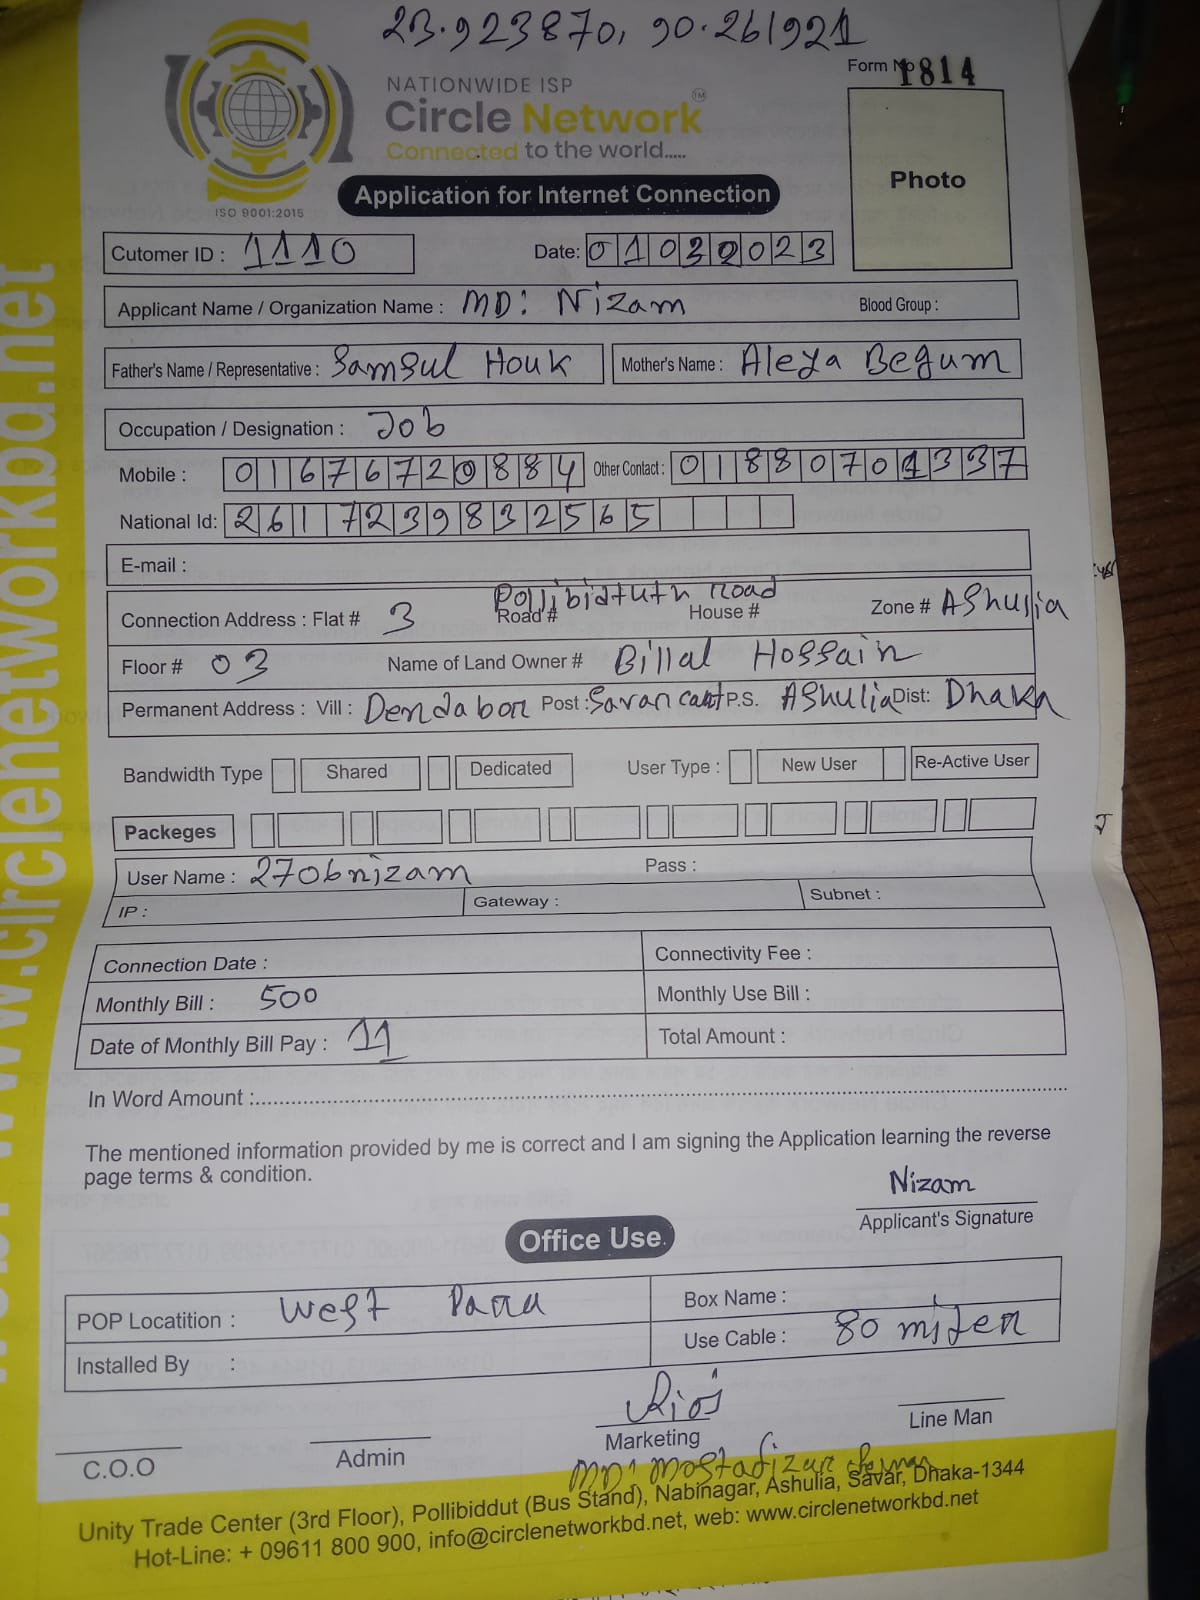 23.923870, 90.261921
Form No 1814
NATIONWIDE ISP
Circle Network TM
Connected to the world.....
ISO 9001:2015
Application for Internet Connection
Photo
Cutomer ID : 1110 Date: 01032023
Applicant Name / Organization Name : MD: Nizam Blood Group :
Father's Name / Representative : Samsul Houk Mother's Name : Aleya Begum
Occupation / Designation : Job
Mobile : 01676720884 Other Contact : 01880701337
National Id: 2617239832565
E-mail :
Connection Address : Flat # 3 Road # Pollibidtuth Road House # Zone # AShulia
Floor # 03 Name of Land Owner # Billal Hossain
Permanent Address : Vill : Dendabor Post : Savar cant P.S. AShulia Dist: Dhaka
Bandwidth Type Shared Dedicated User Type : New User Re-Active User
Packeges
User Name : 2706nizam Pass :
IP : Gateway : Subnet :
Connection Date : Connectivity Fee :
Monthly Bill : 500 Monthly Use Bill :
Date of Monthly Bill Pay : 11 Total Amount :
In Word Amount :
The mentioned information provided by me is correct and I am signing the Application learning the reverse
page terms & condition.
Nizam
Applicant's Signature
Office Use.
POP Locatition : West Para Box Name :
Installed By : Use Cable : 80 miter
C.O.O Admin Marketing Line Man
MD: Mostafizur
Unity Trade Center (3rd Floor), Pollibiddut (Bus Stand), Nabinagar, Ashulia, Savar, Dhaka-1344
Hot-Line: + 09611 800 900, info@circlenetworkbd.net, web: www.circlenetworkbd.net
www.circlenetworkbd.net